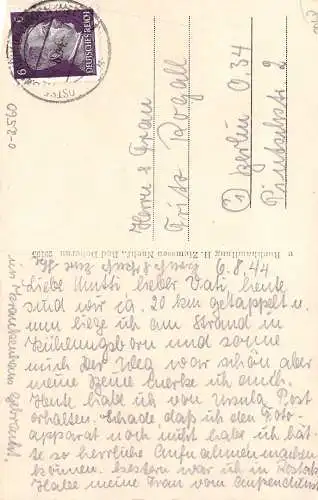 DEUTSCHES REICH
6
6
Herrn & Frau
Fritz Rogall
Berlin O.34
Pintschstr 2
0952-0
Buchhandlung H. Ziemssen Nachf., Bad Doberan
6.8.44
Liebe Mutti lieber Vati, heute
sind wir ca. 20 km getappelt u.
nun liege ich am Strand in
Kühlungsborn und sonne
mich. Der Weg war schön aber
meine Beine merke ich auch.
Heute habe ich von Ursula Post
erhalten. Schade, daß ich den Foto-
apparat noch nicht habe ich hät-
te so herrliche Aufnahmen machen
können. Gestern war ich in Rostock
Habe meine Frau vom
in gebracht.